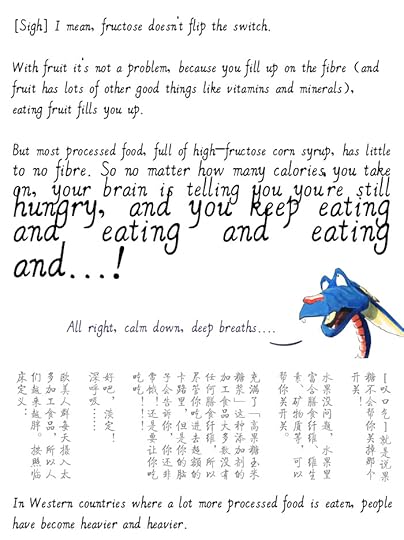 [Sigh] I mean, fructose doesn't flip the switch.
With fruit it's not a problem, because you fill up on the fibre (and
fruit has lots of other good things like vitamins and minerals),
eating fruit fills you up.
But most processed food, full of high-fructose corn syrup, has little
to no fibre. So no matter how many calories you take
on, your brain is telling you you're still
hungry, and you keep eating
and eating and eating
and...!
All right, calm down, deep breaths....
[叹口气]就是说果
糖不会帮你关掉那个
开关！
水果没问题，水果里
富含膳食纤维、维生
素、矿物质等，可以
帮你关开关。
充满了「高果糖玉米
糖浆」这种添加剂的
加工食品大多数没有
任何膳食纤维，所以
尽管你吃进去超额的
卡路里，但是你的脑
子会告诉你，你还非
常饿！还是要让你吃
吃吃！
好吧，淡定！
深呼吸……
欧美人群每天摄入太
多加工食品，所以人
们越来越胖。按照临
床定义：
In Western countries where a lot more processed food is eaten, people
have become heavier and heavier.